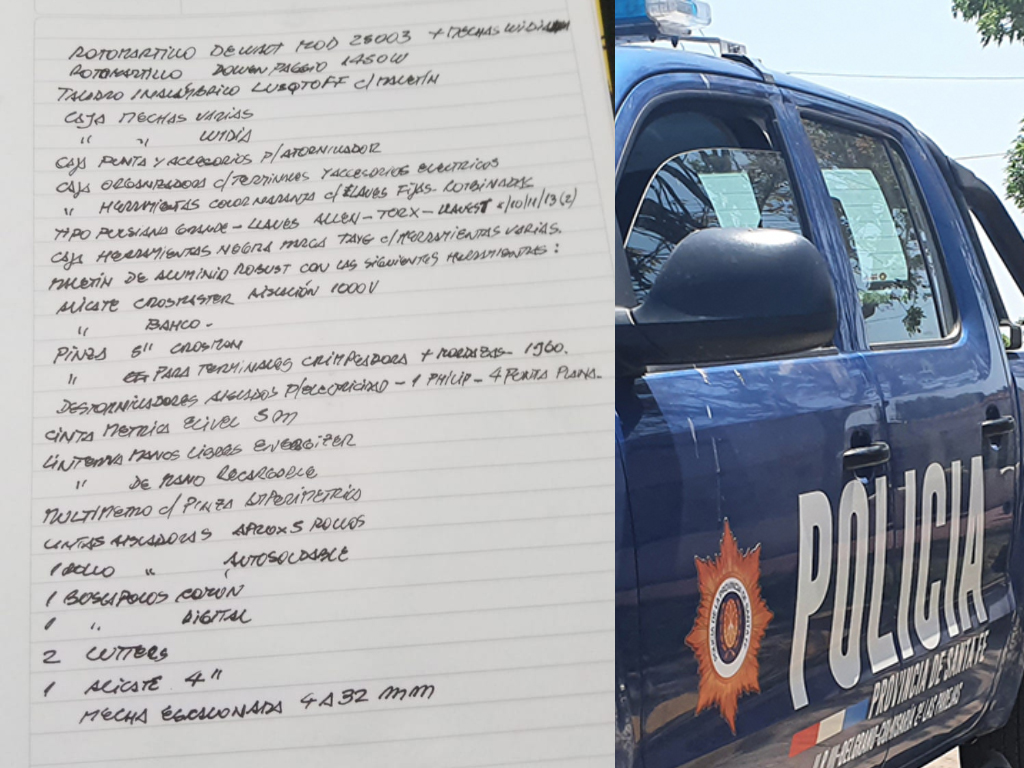 ROTOMARTILLO DEWALT MOD 25003 + MECHAS WIDIA
ROTOMARTILLO DOWEN PAGGIO 1450W
TALADRO INALAMBRICO LUSQTOFF C/MALETIN
CAJA MECHAS VARIAS
" " WIDIA
CAJA PUNTA Y ACCESORIOS P/ATORNILLADOR
CAJA ORGANIZADORA C/TERMINALES Y ACCESORIOS ELECTRICOS
" HERRAMIENTAS COLOR NARANJA C/LLAVES FIJAS-COMBINADAS
TIPO PERSIANA GRANDE-LLAVES ALLEN-TORX-LLAVES T 8/10/11/13(2)
CAJA HERRAMIENTAS NEGRA MARCA TAYG C/HERRAMIENTAS VARIAS.
MALETIN DE ALUMINIO ROBUST CON LAS SIGUIENTES HERRAMIENTAS:
ALICATE CROSMASTER AISLACIÓN 1000V
" BAHCO-
PINZA 8" CROSMAN
" PARA TERMINALES CRIMPEADORA + MORDAZAS- 1960.
DESTORNILLADORES AISLADOS P/ELECTRICIDAD - 1 PHILIP - 4 PUNTA PLANA.
CINTA METRICA 5m
LINTERNA MANOS LIBRES ENERGIZER
" DE MANO RECARGABLE
MULTIMETRO C/ PINZA AMPERIMETRICA
CINTAS AISLADORAS APROX 5 ROLLOS
1 ROLLO " AUTOSOLDABLE
1 BUSCAPOLOS COMÚN
1 " DIGITAL
2 CUTTERS
1 ALICATE 4"
MECHA ESCALONADA 4 A 32 mm
POLICIA
PROVINCIA DE SANTA FE
BELGRANO-COMISARIA 2° LAS PAREJAS